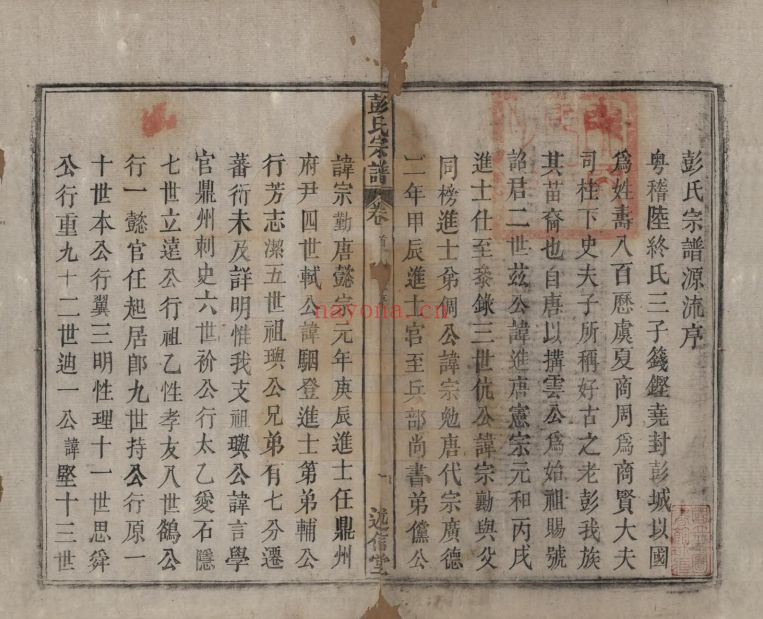 彭氏宗譜源流序
粵稽陸終氏三子籛鏗堯封彭城以國
爲姓壽八百歷虞夏商周爲商賢大夫
司柱下史夫子所稱好古之老彭我族
其苗裔也自唐以搆雲公爲始祖賜號
詔君二世茲公諱進唐憲宗元和丙戌
進士仕至泰錄三世伉公諱宗勳與父
同榜進士弟倜公諱宗勉唐代宗廣德
二年甲辰進士官至兵部尚書弟儻公
彭氏宗譜
卷首
一
述信堂
諱宗勤唐懿宗元年庚辰進士任鼎州
府尹四世軾公諱駰登進士第弟輔公
行芳志潔五世祖璵公兄弟有七分遷
蕃衍未及詳明惟我支祖璵公諱言學
官鼎州刺史六世衯公行太乙愛石隱
七世立遠公行祖乙性孝友八世鶴公
行一懿官任起居郎九世持公行原一
十世本公行翼三明性理十一世思舜
公行重九十二世迪一公諱堅十三世
nayona.cn